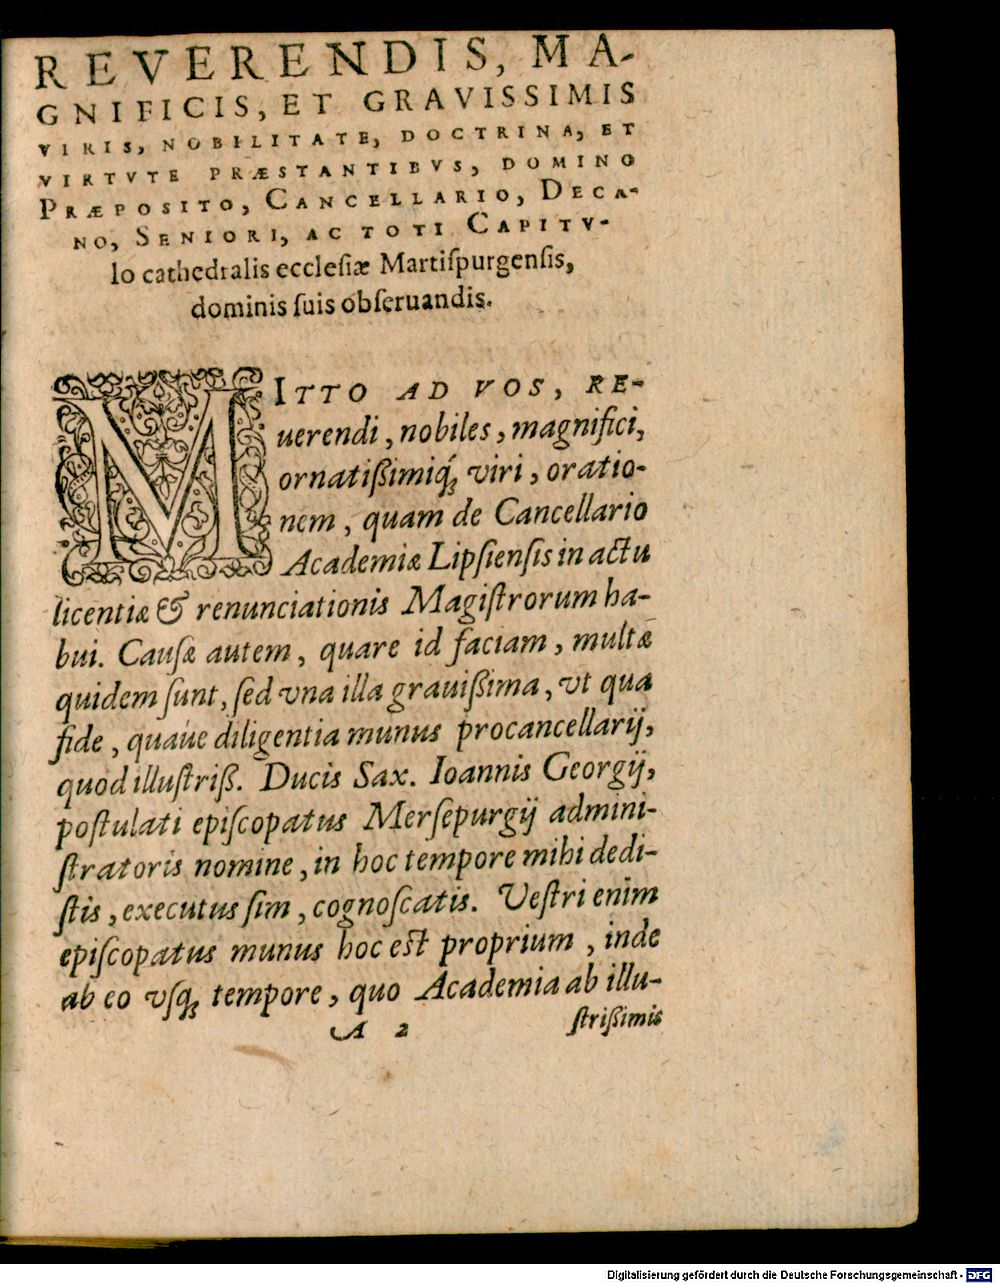 REVERENDIS, MA-
GNIFICIS, ET GRAVISSIMIS
VIRIS, NOBILITATE, DOCTRINA, ET
VIRTVTE PRÆSTANTIBVS, DOMINO
PRÆPOSITO, CANCELLARIO, DECA-
NO, SENIORI, AC TOTI CAPITV-
lo cathedralis ecclesiæ Martiſpurgenſis,
dominis ſuis obſeruandis.
MITTO AD VOS, RE-
uerendi, nobiles, magnifici,
ornatißimiq́; viri, oratio-
nem, quam de Cancellario
Academiæ Lipſienſis in actu
licentiæ & renunciationis Magiſtrorum ha-
bui. Cauſæ autem, quare id faciam, multæ
quidem ſunt, ſed vna illa grauißima, vt qua
fide, quaúe diligentia munus procancellarij,
quod illuſtriß. Ducis Sax. Ioannis Georgij,
poſtulati epiſcopatus Merſepurgij admini-
ſtratoris nomine, in hoc tempore mihi dedi-
ſtis, executus ſim, cognoſcatis. Veſtri enim
epiſcopatus munus hoc est proprium, inde
ab eo vſq; tempore, quo Academia ab illu-
A 2 ſtrißimis
Digitalisierung gefördert durch die Deutsche Forschungsgemeinschaft - DFG